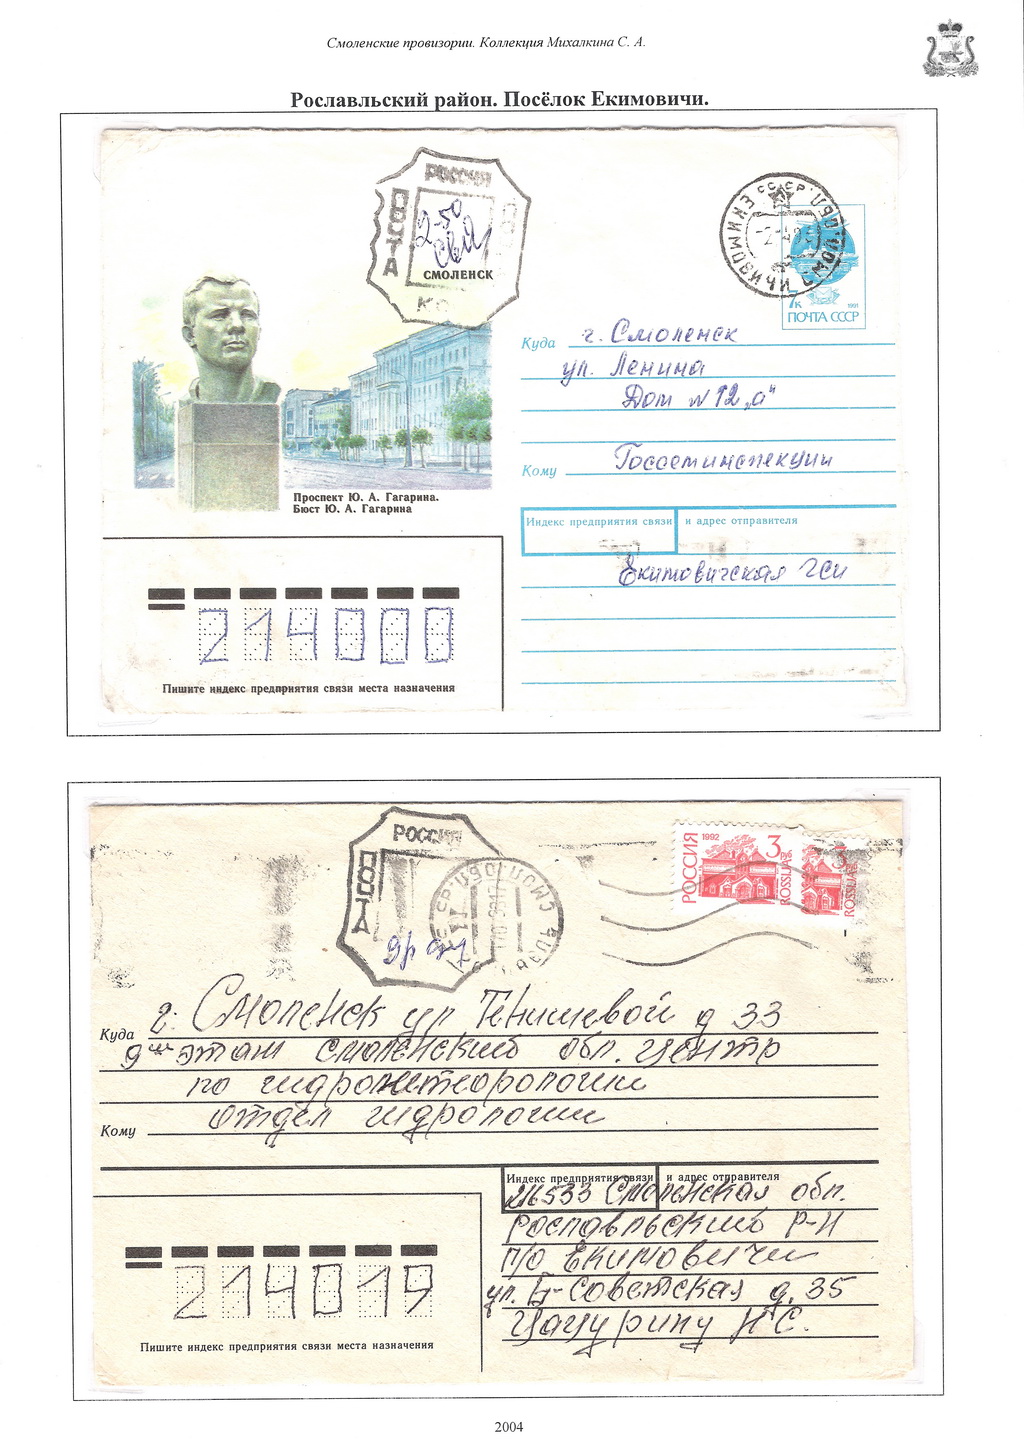 Смоленские провизории. Коллекция Михалкина С. А.
Рославльский район. Посёлок Екимовичи.
РОССИЯ
ПОЧТА
2-50
СМОЛЕНСК
СССР
ЕКИМОВИЧИ СМОЛ. ОБЛ.
7к
1991
ПОЧТА СССР
Куда г. Смоленск
ул. Ленина
Дом № 12 „а"
Кому Госсеминспекции
Проспект Ю. А. Гагарина.
Бюст Ю. А. Гагарина
Индекс предприятия связи и адрес отправителя
Екимовичская ГСИ
214000
Пишите индекс предприятия связи места назначения
РОССИЯ
ПОЧТА
РОССИЯ 1992 3 руб ROSSIJA
3 ROSSIJA
Куда г. Смоленск ул. Тенишевой д 33
9ый этаж смоленский обл. центр
по гидрометеорологии
Кому отдел гидрологии
Индекс предприятия связи и адрес отправителя
216533 Смоленская обл.
Рославльский р-н
п/о Екимовичи
ул. Б-Советская д. 35
Цацурину Н С.
214019
Пишите индекс предприятия связи места назначения
2004